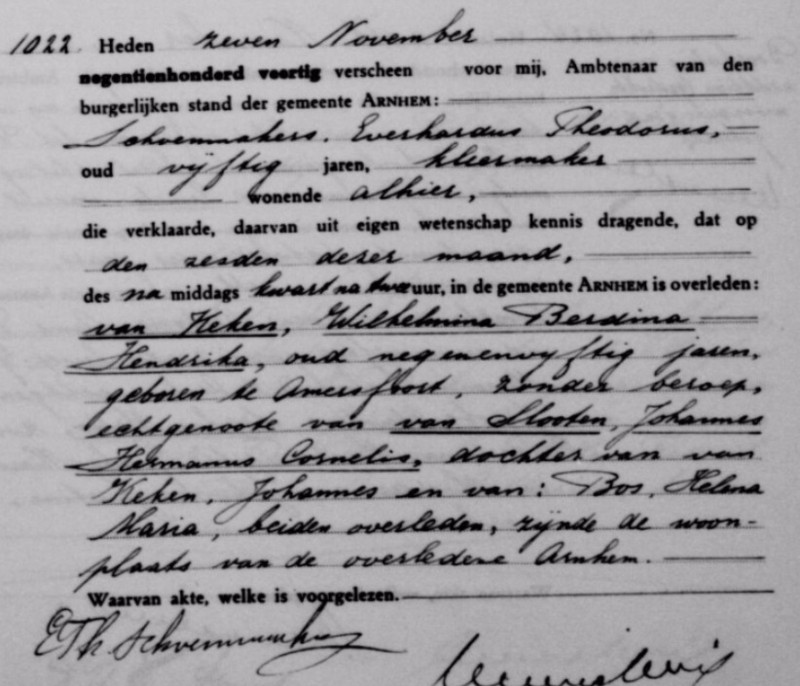 1022. Heden zeven November
negentienhonderd veertig verscheen voor mij, Ambtenaar van den
burgerlijken stand der gemeente ARNHEM:
Schoenmakers. Everhardus Theodorus,
oud vijftig jaren, kleermaker
wonende alhier,
die verklaarde, daarvan uit eigen wetenschap kennis dragende, dat op
den zesden dezer maand,
des na middags kwart na twee uur, in de gemeente ARNHEM is overleden:
van Keken, Wilhelmina Berdina
Hendrika, oud negenenvijftig jaren,
geboren te Amersfoort, zonder beroep,
echtgenoote van van Slooten, Johannes
Hermanus Cornelis, dochter van van
Keken, Johannes en van: Bos, Helena
Maria, beiden overleden, zijnde de woon-
plaats van de overledene Arnhem.
Waarvan akte, welke is voorgelezen.
ETh Schoenmakers